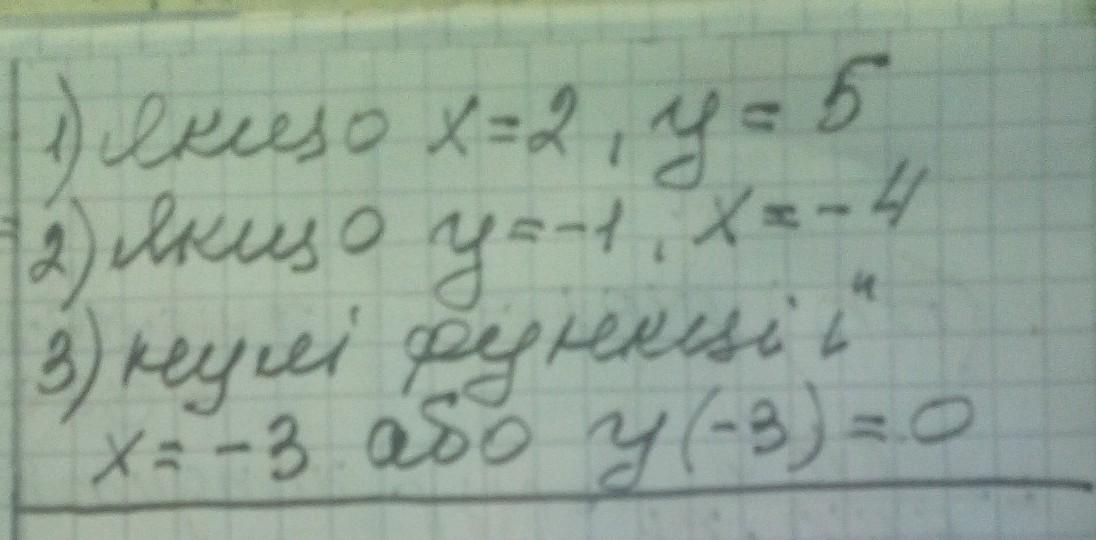 1) Якщо x=2, y=5
2) Якщо y=-1, x=-4
3) нулі функції
x=-3 або y(-3)=0